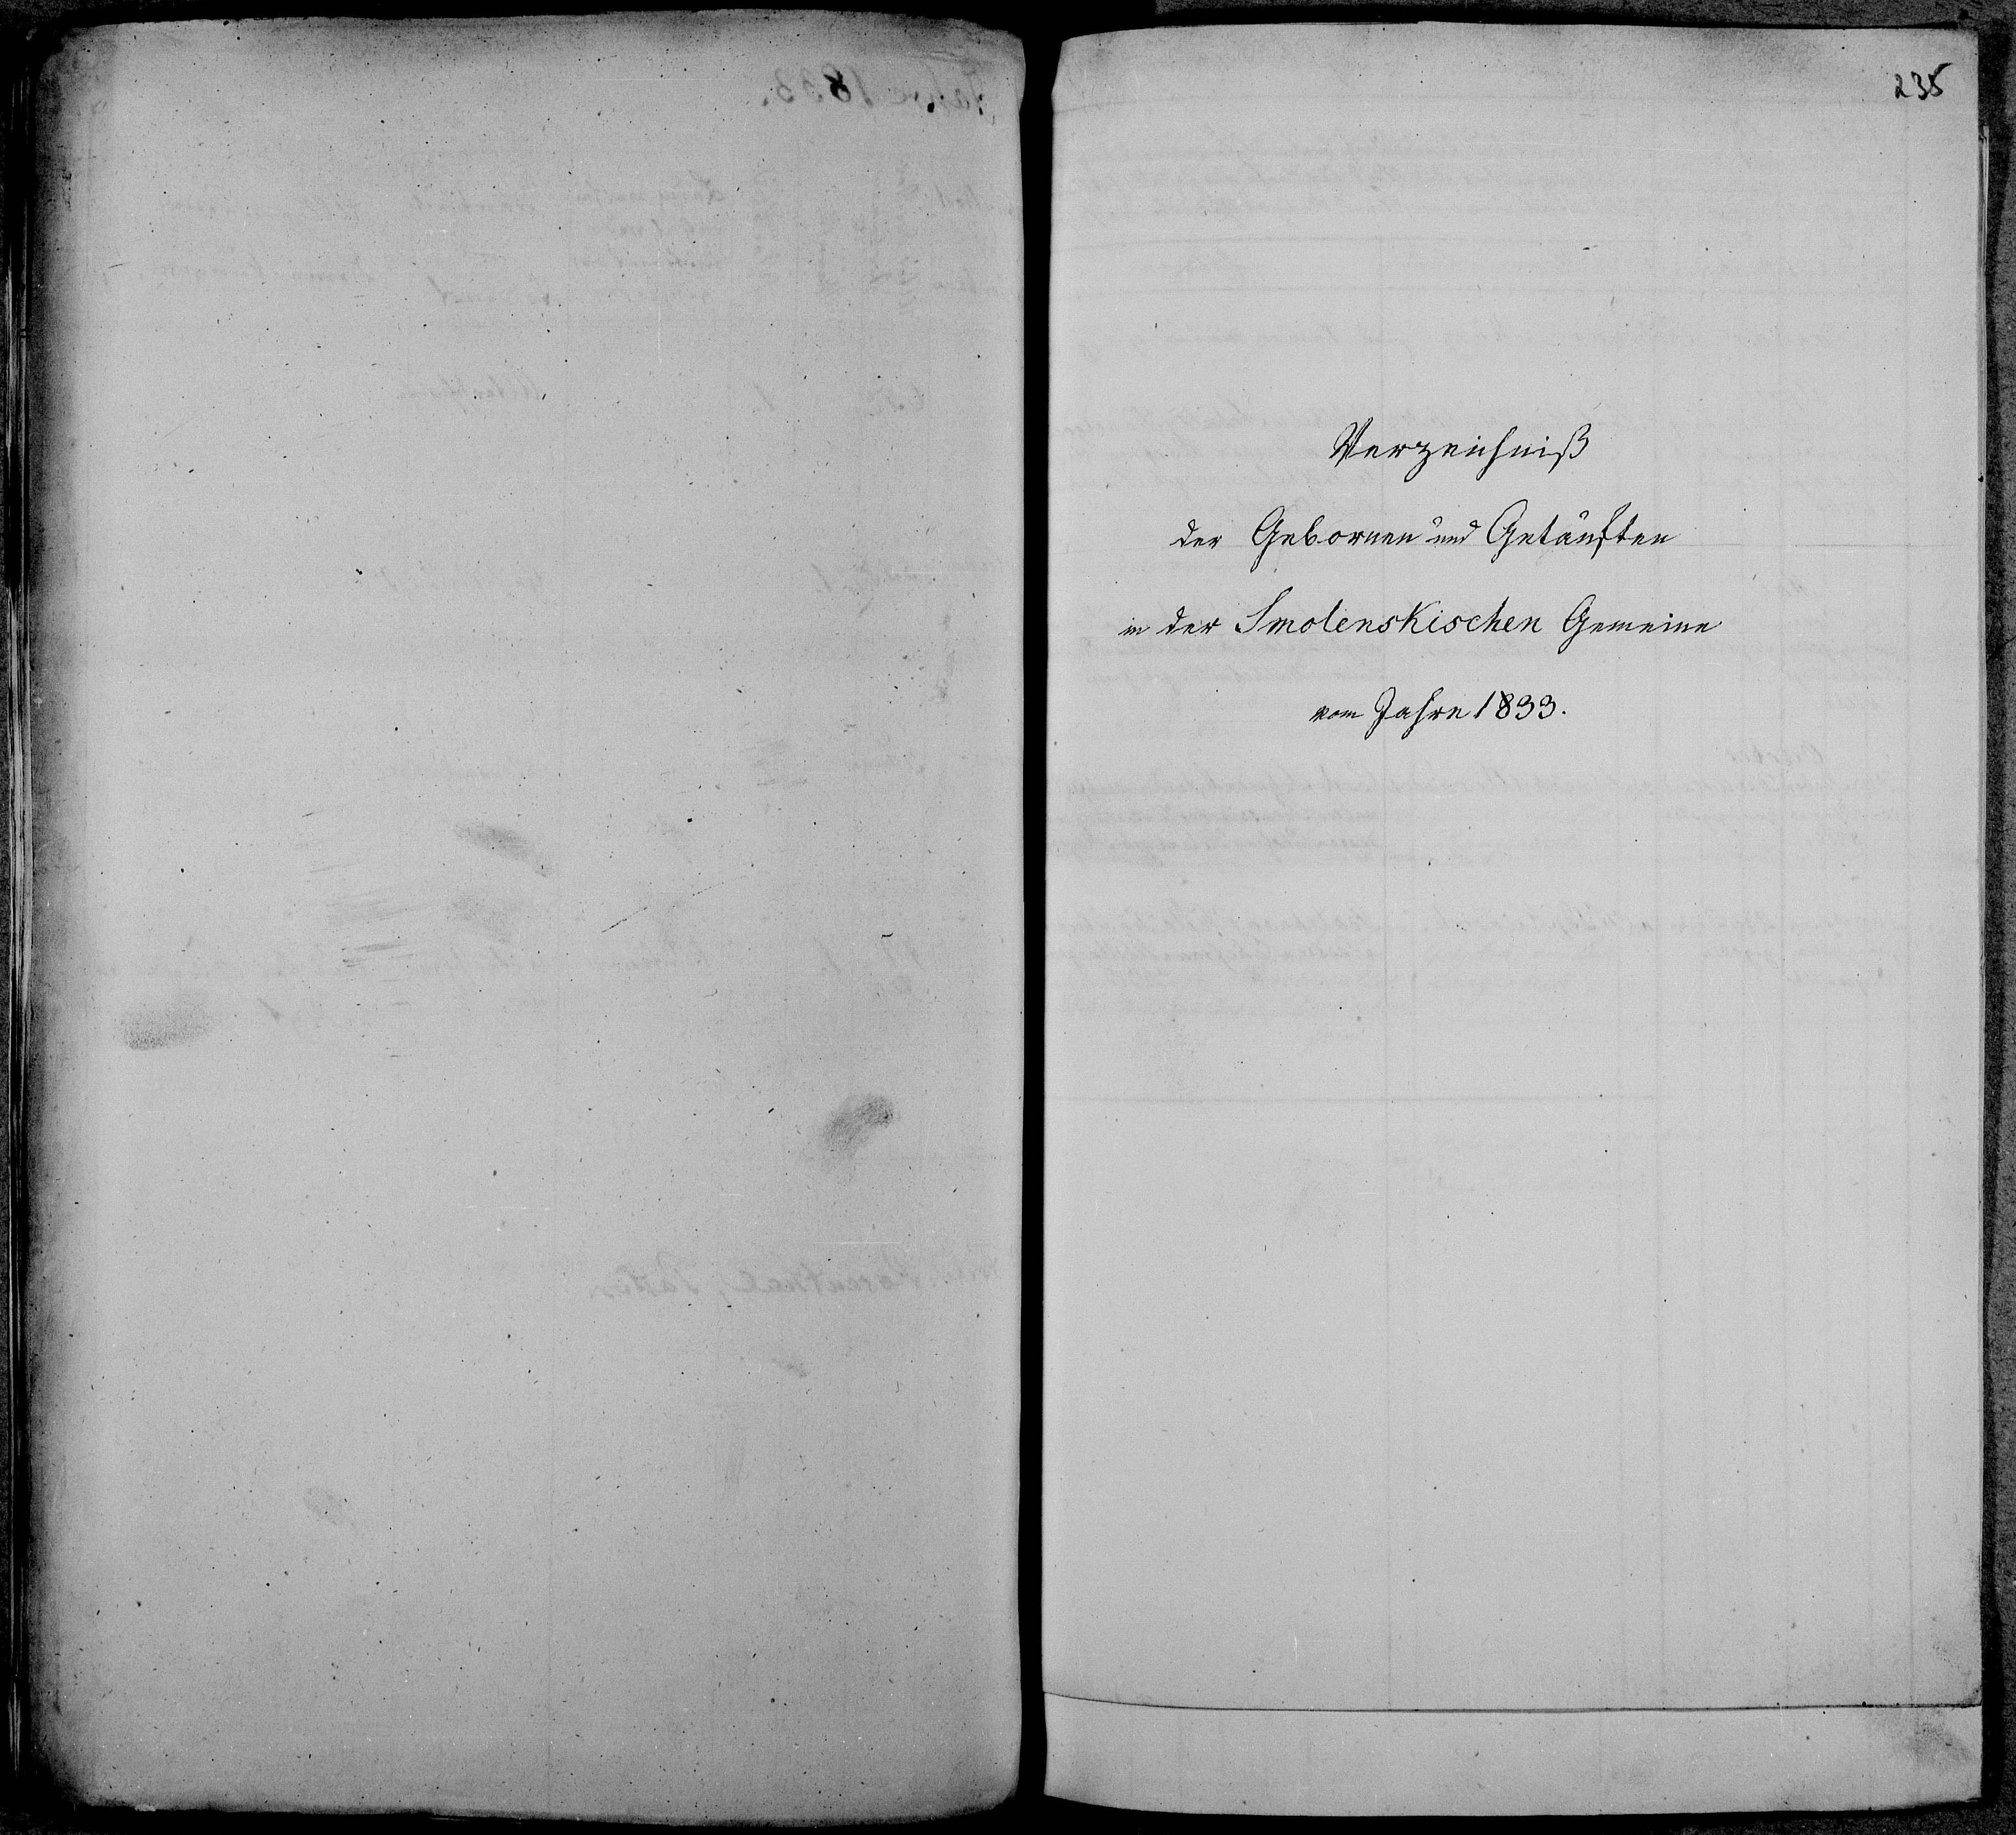 235
Verzeichniß
der Gebornen und Getauften
in der Smolenskischen Gemeine
vom Jahre 1833.